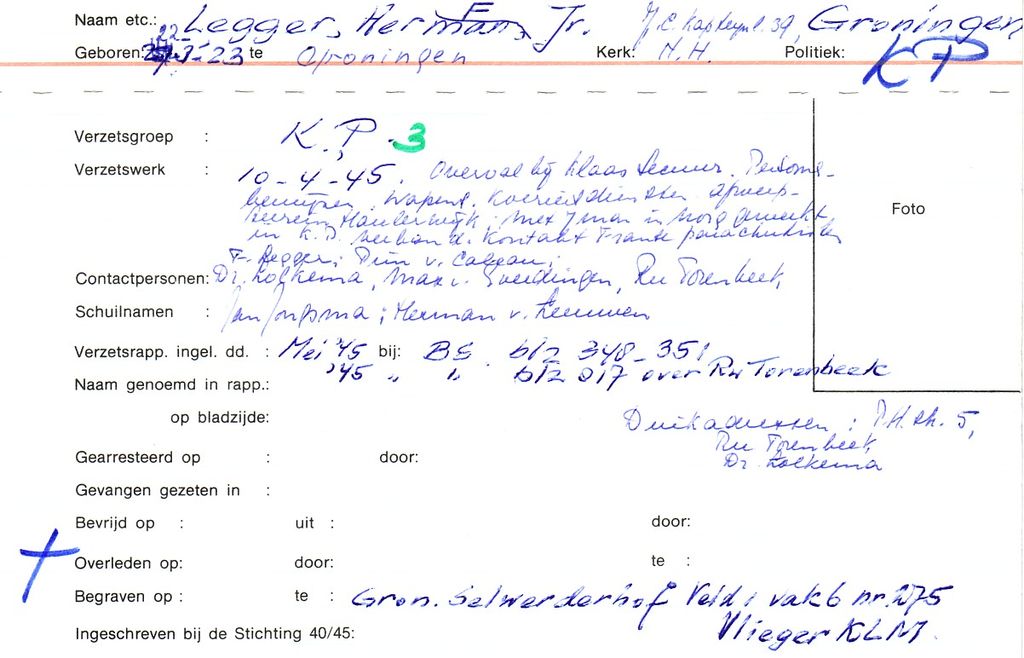 Naam etc.: Legger, Herman, F Jr. J.C. Kapteynl. 39, Groningen
Geboren: 22-1-23 te Groningen Kerk: N.H. Politiek: KP
Verzetsgroep : K.P. 3
Verzetswerk : 10-4-45. Overval bij Klaas Persoons-
bewijzen, wapens, Koeriersdiensten
Harderwijk; met Jman in
in K.P. verband. Kontakt Franse parachutisten
F. Legger; Pim v.
Contactpersonen: Dr. Lolkema, Max v. Ru Torenbeek,
Schuilnamen : Jan Jongsma; Herman v. Leeuwen
Verzetsrapp. ingel. dd. : Mei '45 bij: BS. blz 348-351
'45 " " blz 317 over Ru Torenbeek
Naam genoemd in rapp.:
op bladzijde:
Foto
Duikadressen : 5,
Ru Torenbeek,
Dr. Lolkema
Gearresteerd op : door:
Gevangen gezeten in :
Bevrijd op : uit : door:
Overleden op: door: te :
Begraven op : te : Gron. Selwerderhof Veld 1 vak 6 nr. 275
Vlieger KLM.
Ingeschreven bij de Stichting 40/45: